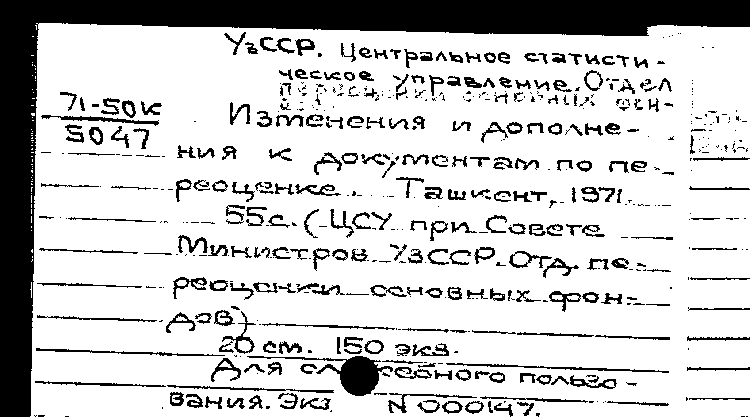 УзССР. Центральное статисти-
ческое управление. Отдел
переоценки основных фон-
дов.
71-50к
5047
Изменения и дополне-
ния к документам по пе-
реоценке. Ташкент, 1971.
55с. (ЦСУ при Совете
Министров УзССР. Отд. пе-
реоценки основных фон-
дов)
20 см. 150 экз.
Для служебного пользо-
вания. Экз N 000147.